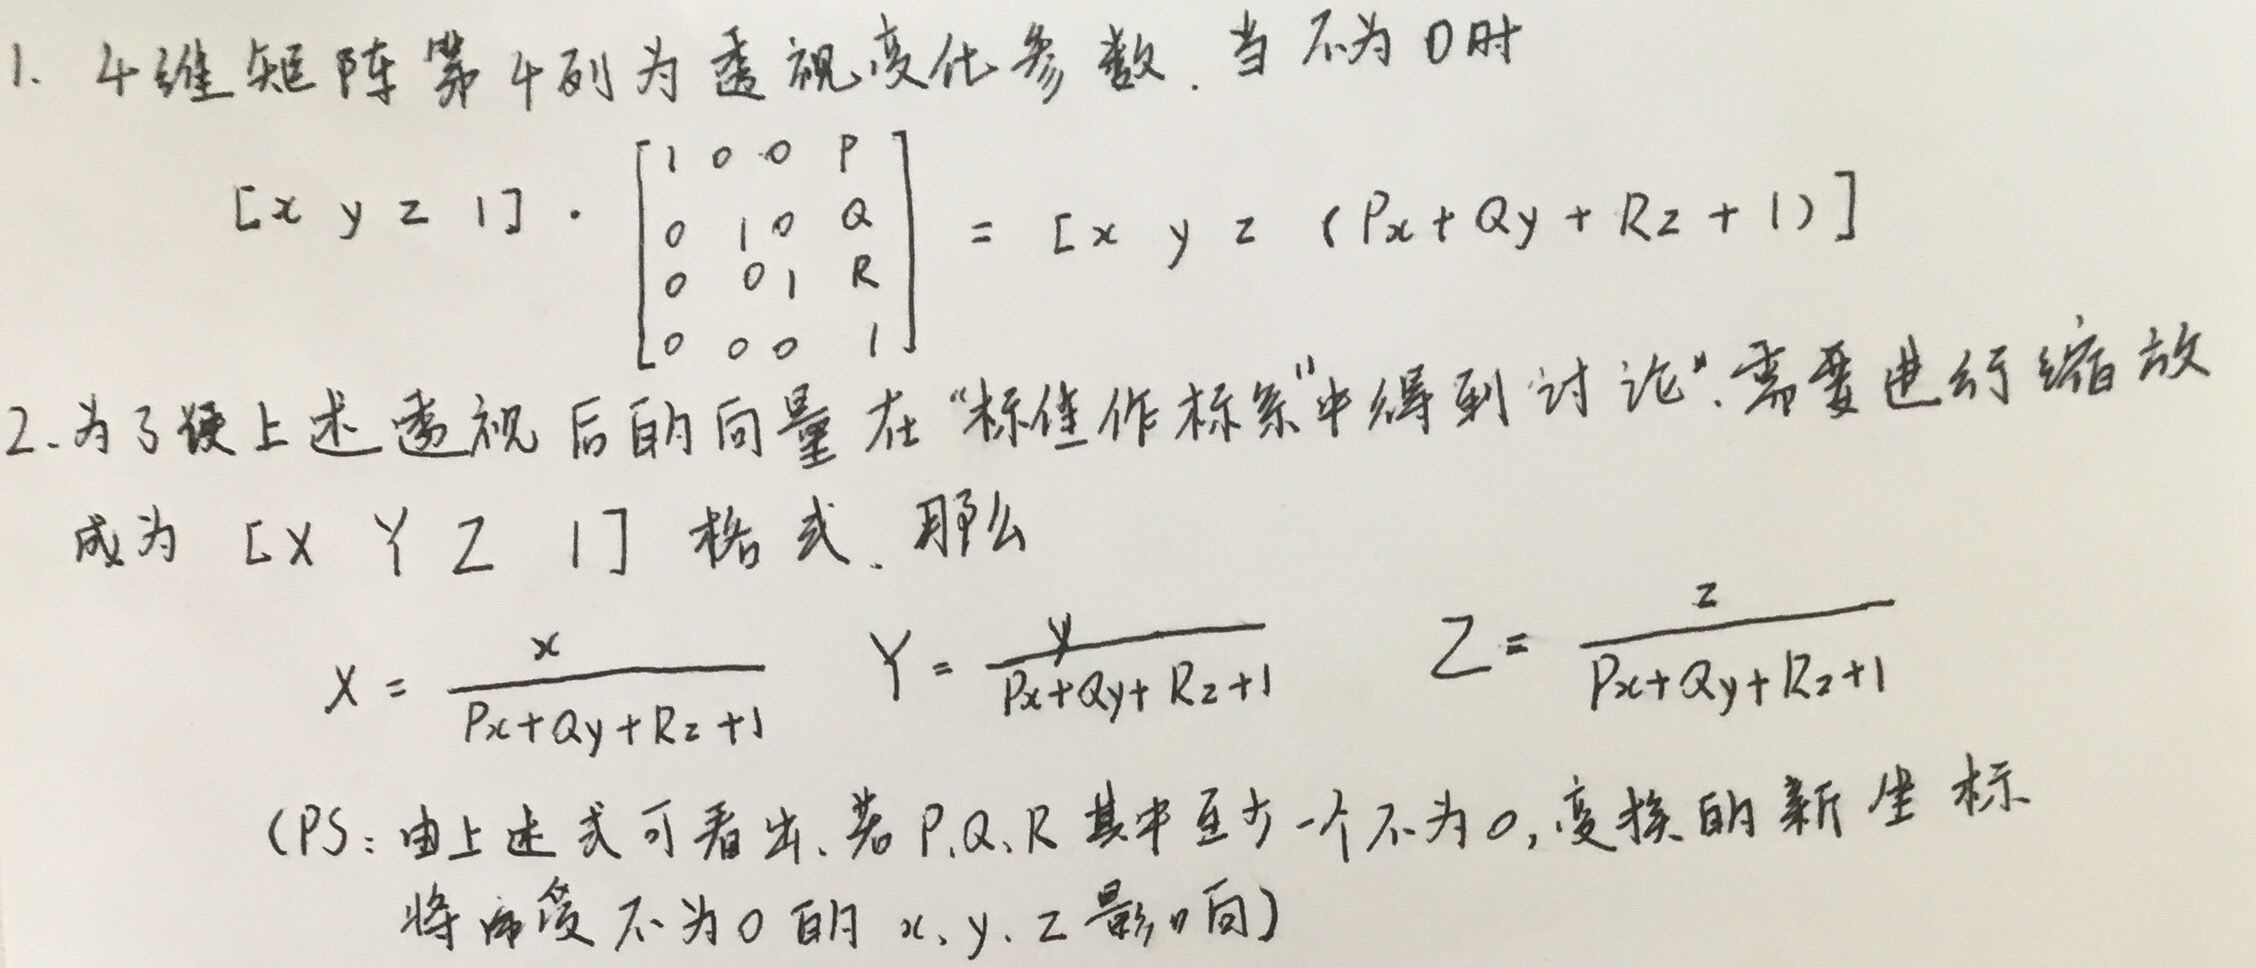 1. 4维矩阵第4列为透视变化参数.当不为0时
[x y z 1] · [1 0 0 P
0 1 0 Q
0 0 1 R
0 0 0 1] = [x y z (Px+Qy+Rz+1)]
2.为了使上述透视后的向量在“标准作标系”中得到讨论”.需要进行缩放
成为 [X Y Z 1] 格式、那么
X = x / (Px+Qy+Rz+1) Y = y / (Px+Qy+Rz+1) Z = z / (Px+Qy+Rz+1)
(PS:由上述式可看出、若P、Q、R其中至少一个不为0,变换的新坐标
将受不为0的x、y、z影响)